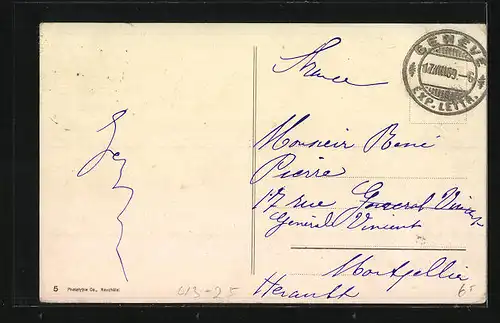 GENÈVE
EXP. LETTR.
France
Monsieur René
Pierre
17 rue General Vincent
Générale Vincent
Montpellier
Herault
5 Phototypie Co., Neuchâtel
013-25